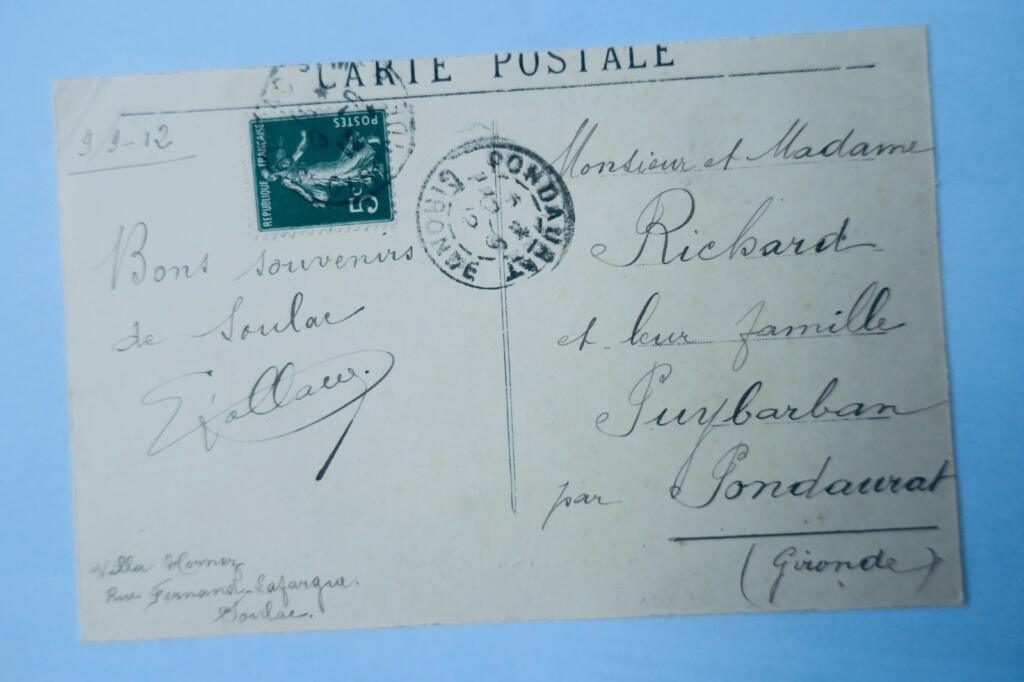 CARTE POSTALE
9-9-12
REPUBLIQUE FRANÇAISE
POSTES
5c
PONDAURAT
GIRONDE
Bons souvenirs
de Soulac
Villa Hornez
Rue Fernand-Lafargue.
Soulac.
Monsieur et Madame
Richard
et leur famille
Puybarban
par Pondaurat
(Gironde)